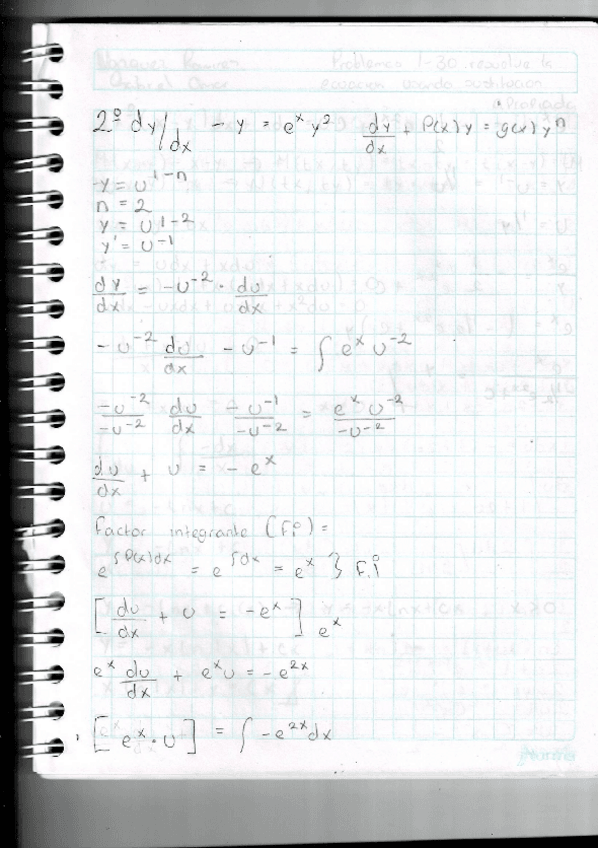 Vazquez Ramirez Problemas 1-30 resuelve la
Gabriel Omar ecuacion usando sustitucion
Apropiada
2º dy/dx - y = e^x y^2 dy/dx + P(x) y = g(x) y^n
-y = u^1-n
n = 2
y = u^1-2
y' = u^-1
dy/dx = -u^-2 · du/dx
-u^-2 du/dx - u^-1 = ∫ e^x u^-2
-u^-2/-u^-2 du/dx -u^-1/-u^-2 = e^x u^-2/-u^-2
du/dx + u = -e^x
Factor integrante (Fi) =
e^∫P(x)dx = e^∫dx = e^x } F.i
[du/dx + u = -e^x] e^x
e^x du/dx + e^x u = -e^2x
[e^x · u] = ∫ -e^2x dx